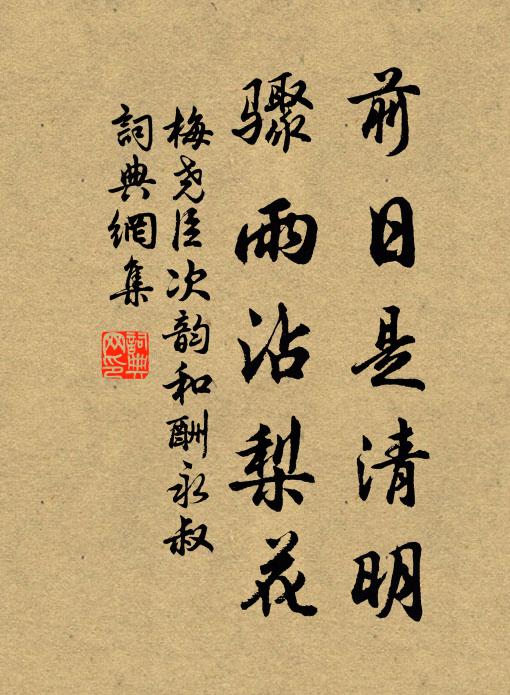 前日是清明
骤雨沾梨花
梅尧臣次韵和酬永叔
詞典網集
詞典网印